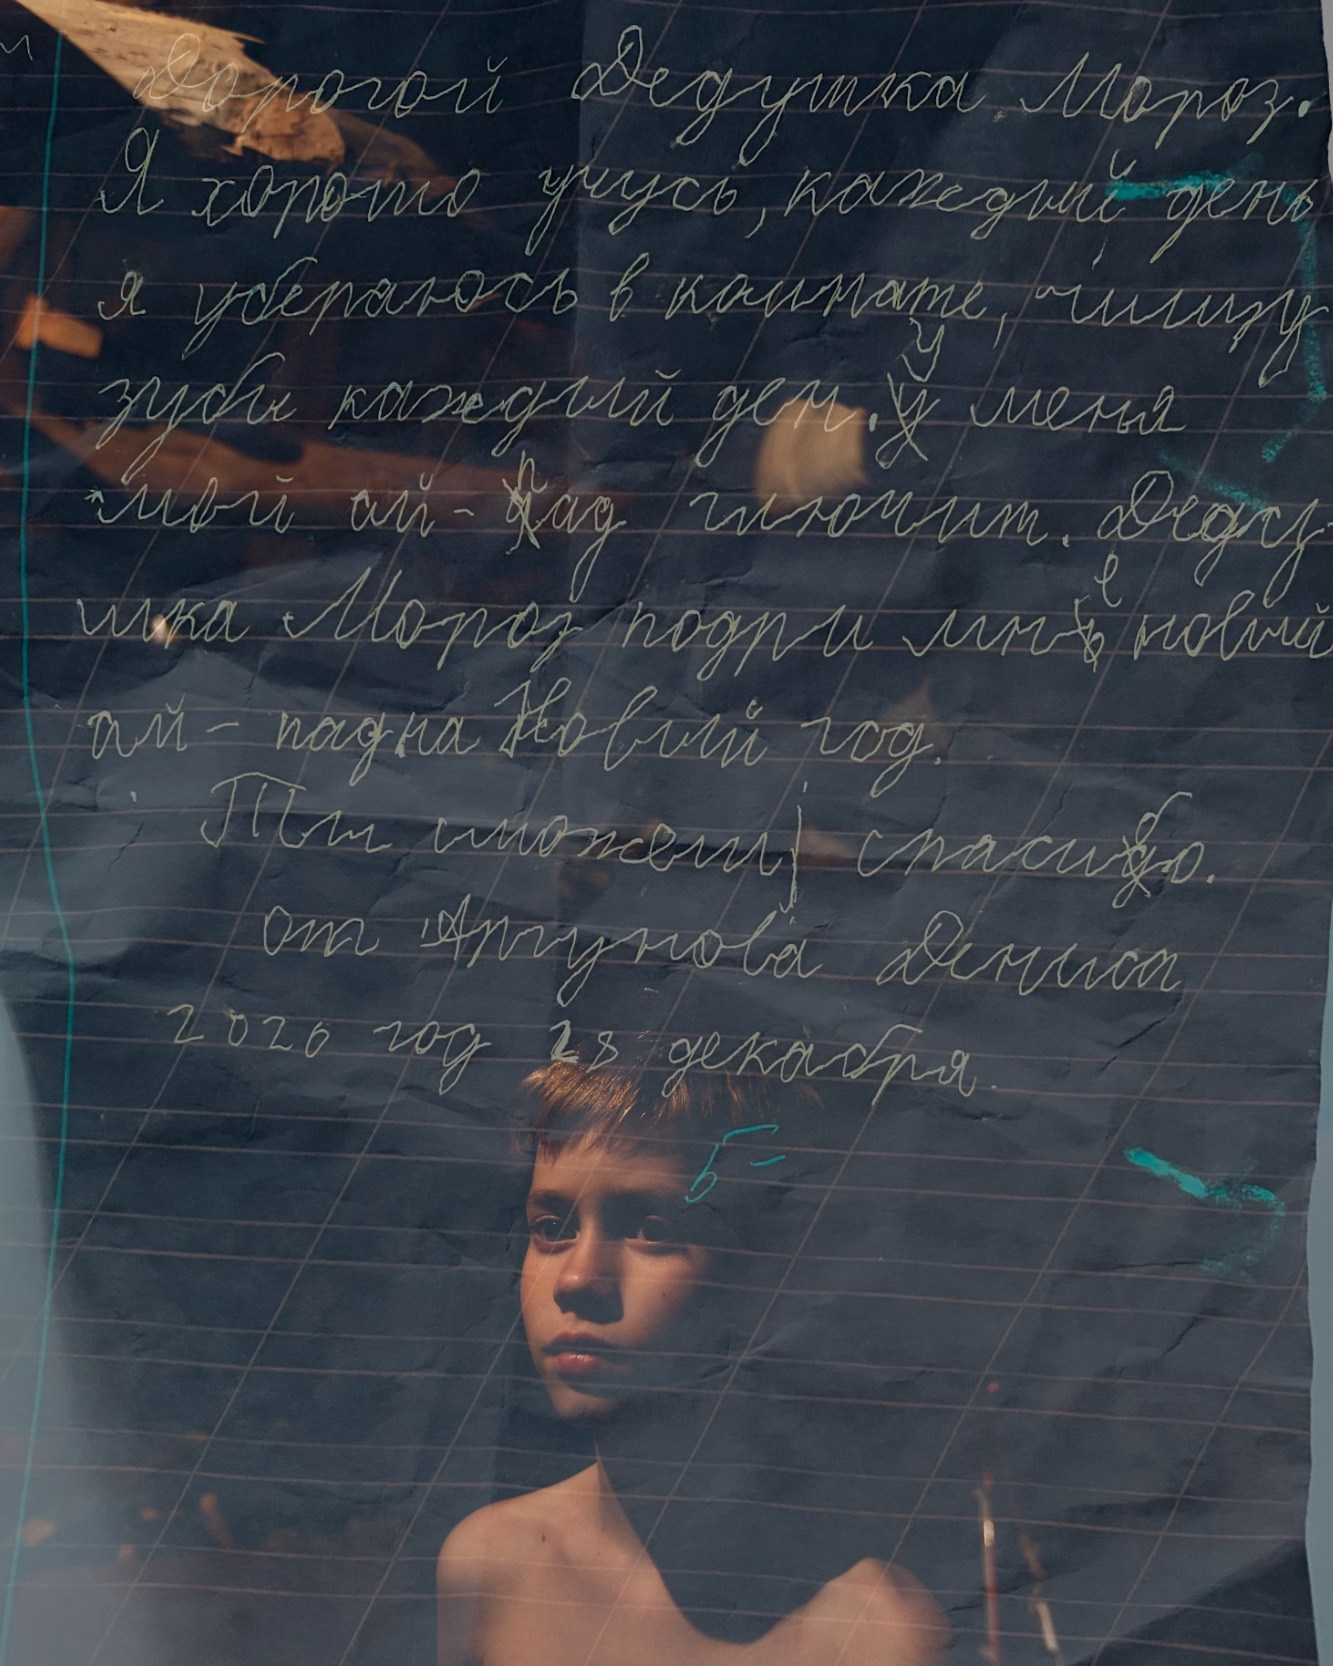 Дорогой Дедушка Мороз.
Я хорошо учусь, каждый день
я убераюсь в комнате, чищу
зубы каждый ден. У меня
мой ай-пад глючит. Деду-
шка Мороз подри мне новый
ай-пад на Новый год.
Ты сможеш, спасибо.
от Арчунова Дениса
2020 год 28 декабря.
5-